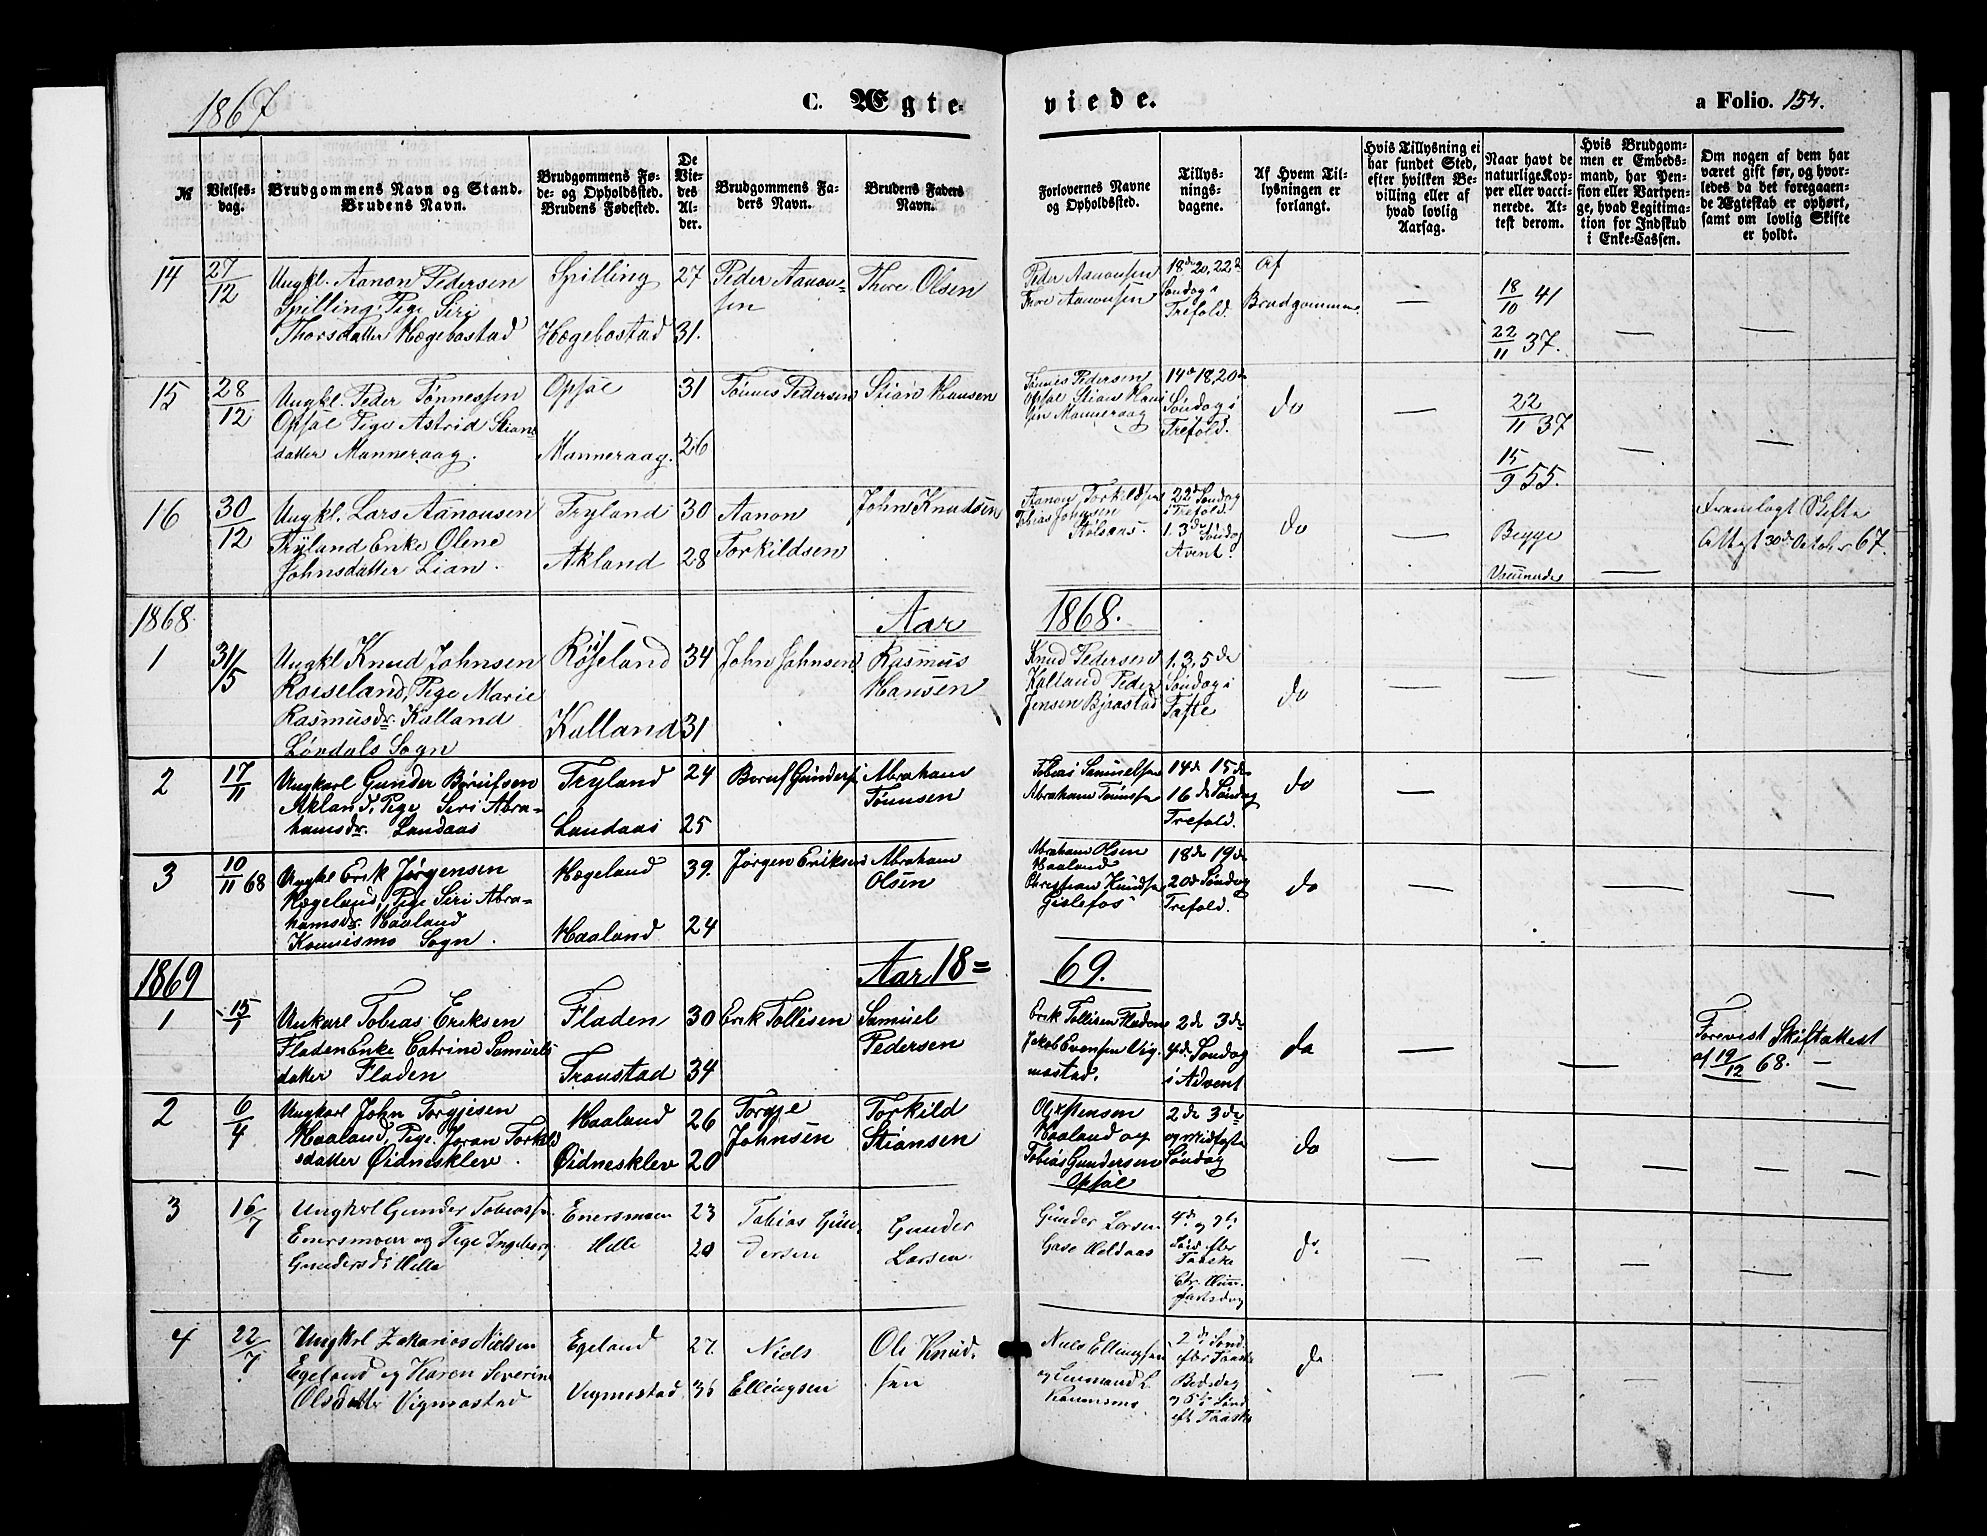 1867
C. Ægte-
viede.
a Folio. 154.
№
Vielses-
dag.
Brudgommens Navn og Stand.
Brudens Navn.
Brudgommens Fø-
de- og Opholdssted.
Brudens Fødested.
De
Vie-
des
Al-
der.
Brudgommens Fa-
ders Navn.
Brudens Faders
Navn.
Forlovernes Navne
og Opholdssted.
Tillys-
nings-
dagene.
Af Hvem Til-
lysningen er
forlangt.
Hvis Tillysning ei
har fundet Sted,
efter hvilken Be-
villing eller af
hvad lovlig
Aarsag.
Naar havt de
naturlige Kop-
per eller vacci-
nerede. At-
test derom.
Hvis Brudgom-
men er Embeds-
mand, har Pen-
sion eller Vartpen-
ge, hvad Legitima-
tion for Indskud
i Enke-Cassen.
Om nogen af dem har
været gift før, og hvor-
ledes da det foregaaen-
de Ægteskab er ophørt,
samt om lovlig Skifte
er holdt.
14
27/12
Ungkl. Aanon Pedersen
Spilling, Pige Siri
Thorsdatter Hægebostad
Spilling
Hægebostad
27
31.
Peder Aanon-
sen
Thore Olsen
Peder Aanonsen
Thore Aanonsen
18de 20, 22de
Søndag i
Trefold.
Af
Brudgommen
—
18/10 41
22/11 37.
—
—
15
28/12
Ungkl. Peder Tønnessen
Opsøl Pige Astrid Stians
datter Manneraag.
Opsøl
Manneraag.
31
26
Tønnes Pedersen
Stian Hansen
Tønnes Pedersen
Opsøl Stian Han
sen Manneraag
14de 18, 20de
Søndag i
Trefold.
do
—
22/11 37
15/9 55.
—
—
16
30/12
Ungkl. Lars Aanonsen
Tryland Enke Olene
Johnsdatter Lian.
Tryland
Akland
30
28
Aanon
Torkildsen
John Knudsen
Aanon Torkildsen
Tobias Johnsen
22de Søndag
i Trefold.
1. 3de Søndag
Advent.
do
—
Begge
—
Fremlagt Skifte
Attest 30de October 67.
1868
Aar
1868.
1
31/5
Ungkl Knud Johnsen
Roiseland, Pige Marie
Rasmusdr. Kalland
Løvdals Sogn
Røiseland
Kalland
34
31
John Johnsen
Rasmus
Hansen
Knud Pedersen
Kalland Peder
Jensen Bjaastad
1. 3, 5de
Søndag i
Faste
do
—
—
—
—
2
17/11
Ungkarl Gunder Børufsen
Akland, Pige Siri Abra-
hamsdr. Landaas
Tryland
Landaas
24
25
Boruf Gunders
Abraham
Tønnsen
Tobias Samuelsen
Abraham Tønnsen
14de 15de
16de Søndag
Trefold.
do
—
3
10/11 68
Ungkl Erik Jørgensen
Hægeland, Pige Siri Abra-
hamsdr. Haaland
Konnismo Sogn.
Hægeland
Haaland
39.
24
Jørgen Eriksen
Abraham
Olsen
Abraham Olsen
Haaland
Christian Knudsen
Gislefos
18de 19de
20de Søndag
Trefold.
do
—
—
—
—
1869
Aar 18=
69.
1
15/1
Unkarl Tobias Eriksen
Fladen Enke Catrine Samuels
datter Fladen
Fladen
Transtad
30
34
Erik Tollisen
Samuel
Pedersen
Erik Tollisen Fladen
Jakob Evensen Vig-
mostad.
2de 3de
4de Søndag
i Advent
do
—
—
—
Forevist Skiftattest
af 19/12 68.
2
6/4
Ungkarl John Torgjesen
Haaland, Pige Joran Torkild
sdatter Øidnesklev.
Haaland
Øidnesklev
26
20
Torgje
Johnsen
Torkild
Stiansen
Haaland og
Tobias Gundersen
Opsøl
2de 3de
og Midfaste
Søndag
do
—
—
—
—
3
16/7
Ungkrl Gunder Tobiassen
Enersmoen og Pige Ingeborg
Gundersd. Hille
Enersmoen
Hille
23
20
Tobias Gun-
dersen
Gunder
Larsen
Gunder Larsen
do
—
—
—
—
4
22/7
Ungkrl Zakarias Nielsen
Egeland og Karen Severine
Olsdatter Vigmostad
Egeland
Vigmostad
27
36
Niels
Ellingsen
Ole Knud-
sen
Niels Ellingsen
2de Sønd.
efter Paaske
Bededag
og 5te Sønd
eft Paaske
do
—
—
—
—